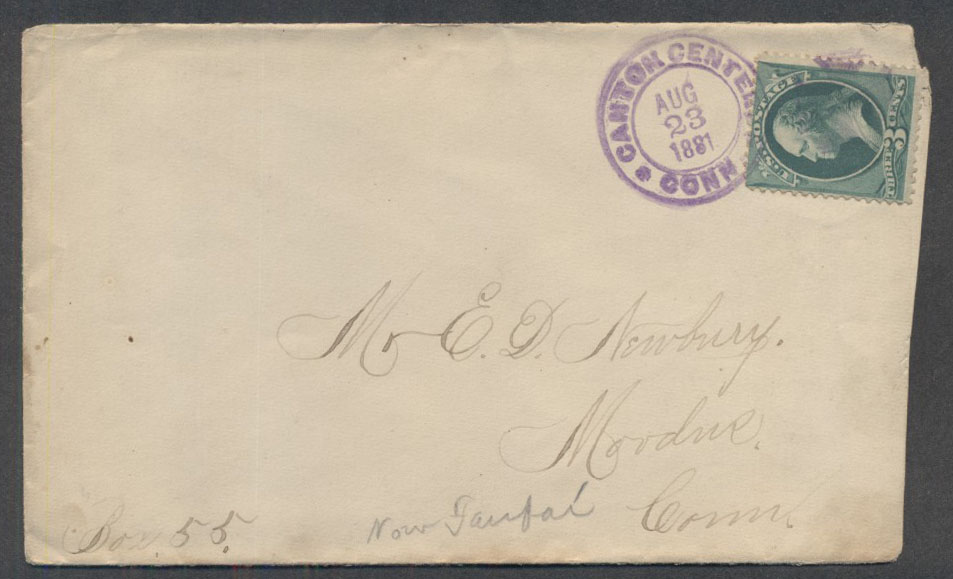 CANTON CENTER
AUG
23
1881
CONN
U.S. POSTAGE
3
CENTS
Mr E. D. Newbury.
Moodus.
Conn.
Box 55.
Now